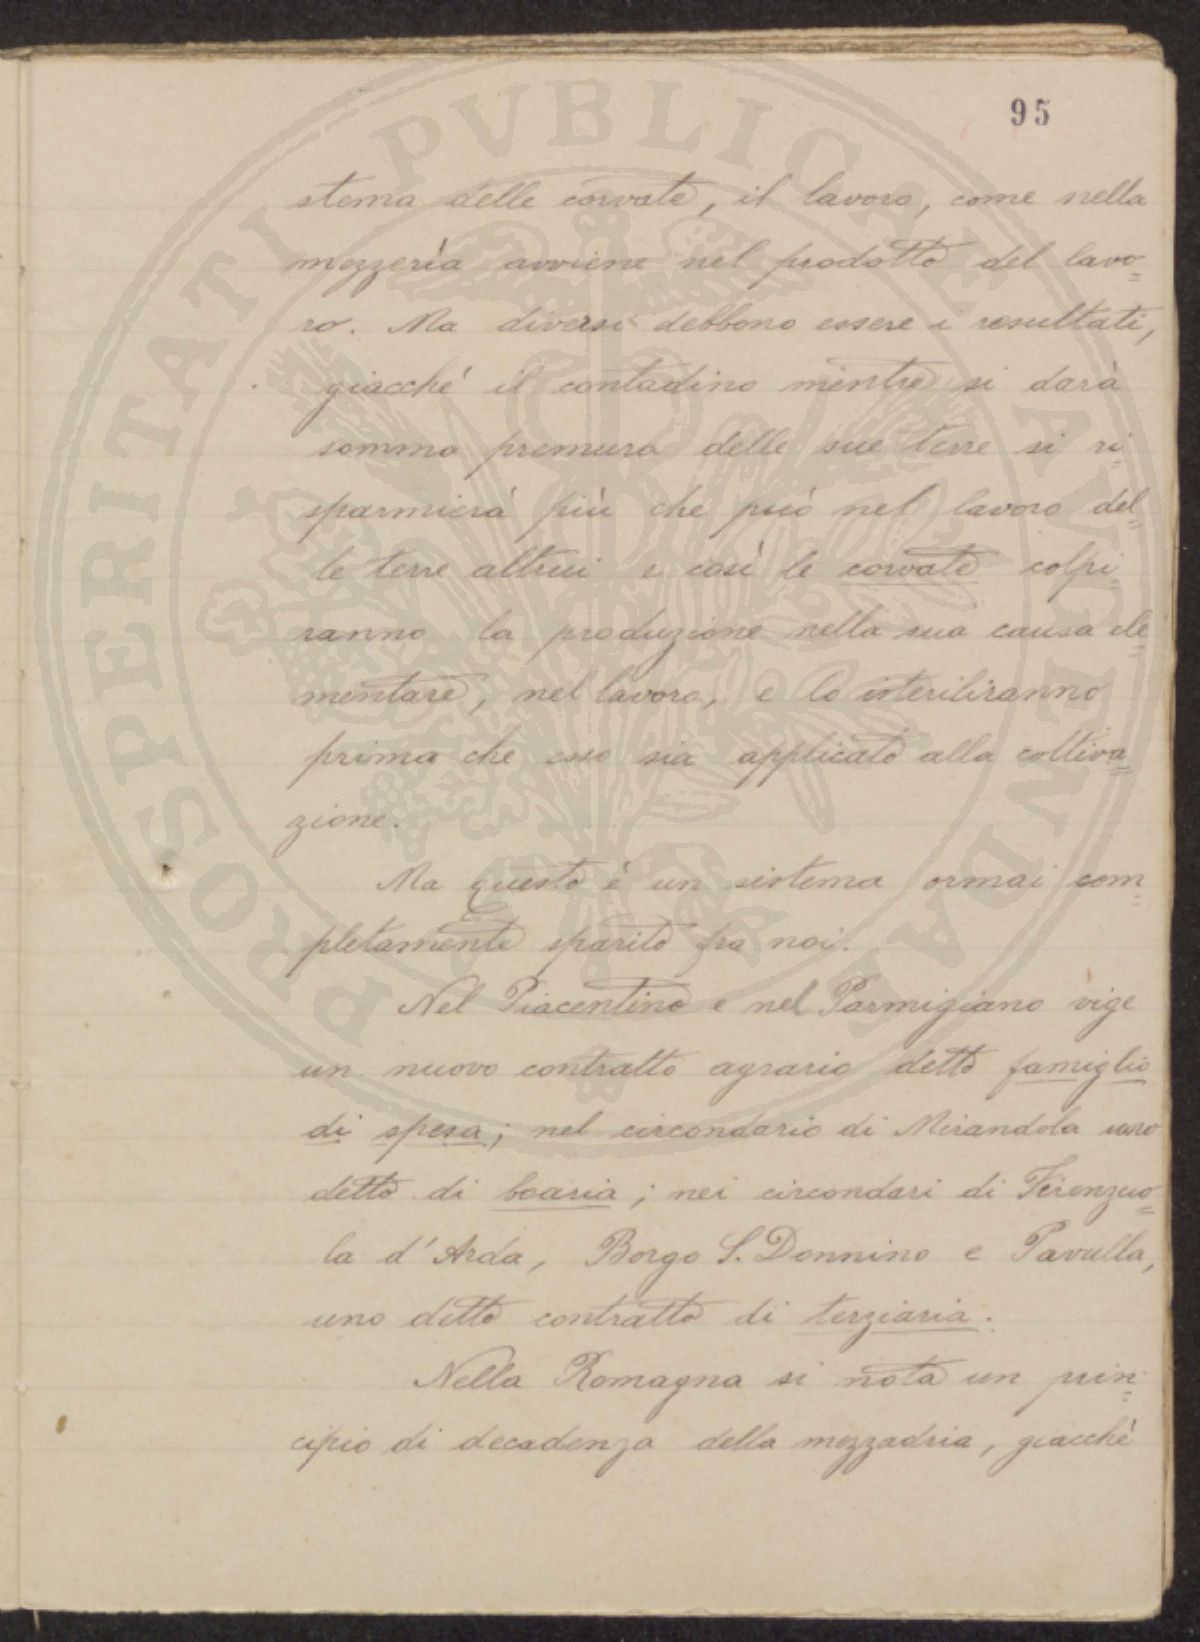 95
stema delle corvate, il lavoro, come nella
mezzerìa avviene nel prodotto del lavo=
ro. Ma diversi debbono essere i resultati,
giacché il contadino mentre si darà
somma premura delle sue terre si ri=
sparmierà più che può nel lavoro del=
le terre altrui e così le corvate colpi=
ranno la produzione nella sua causa ele=
mentare, nel lavoro, e lo isteriliranno
prima che esso sia applicato alla coltiva=
zione.
Ma questo è un sistema ormai com=
pletamente sparito fra noi.
Nel Piacentino e nel Parmigiano vige
un nuovo contratto agrario detto famiglio
di spesa; nel circondario di Mirandola uno
detto di boaria; nei circondari di Firenzuo=
la d'Arda, Borgo S. Donnino e Pavulla,
uno detto contratto di terziaria.
Nella Romagna si nota un prin=
cipio di decadenza della mezzadria, giacchè
PROSPERITATI PVBLICAE AVGENDAE